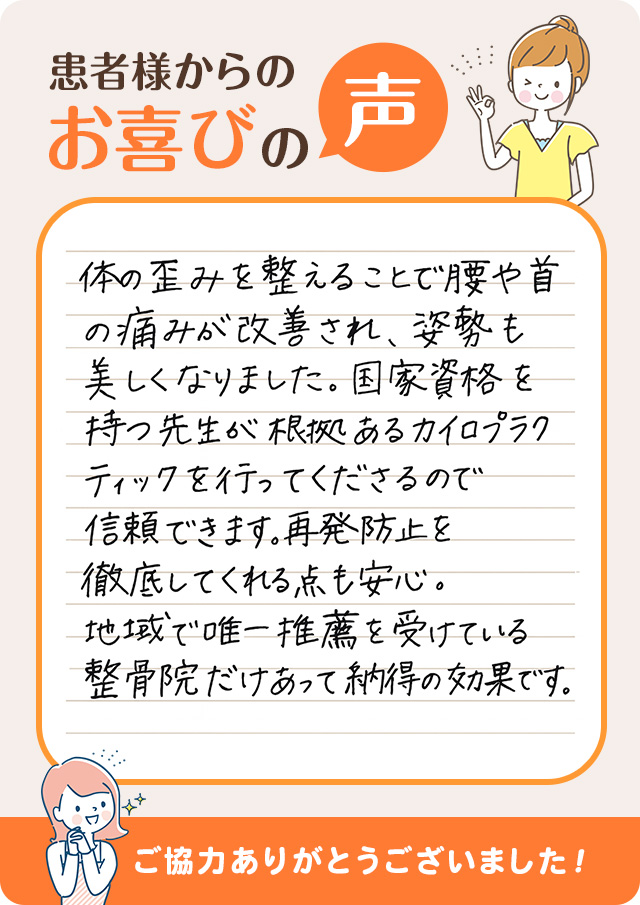 患者様からの
お喜びの声
体の歪みを整えることで腰や首
の痛みが改善され、姿勢も
美しくなりました。国家資格を
持つ先生が根拠あるカイロプラク
ティックを行ってくださるので
信頼できます。再発防止を
徹底してくれる点も安心。
地域で唯一推薦を受けている
整骨院だけあって納得の効果です。
ご協力ありがとうございました!